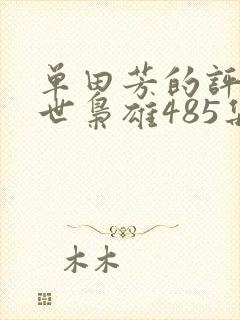 单田芳的评
世枭雄485集
木木